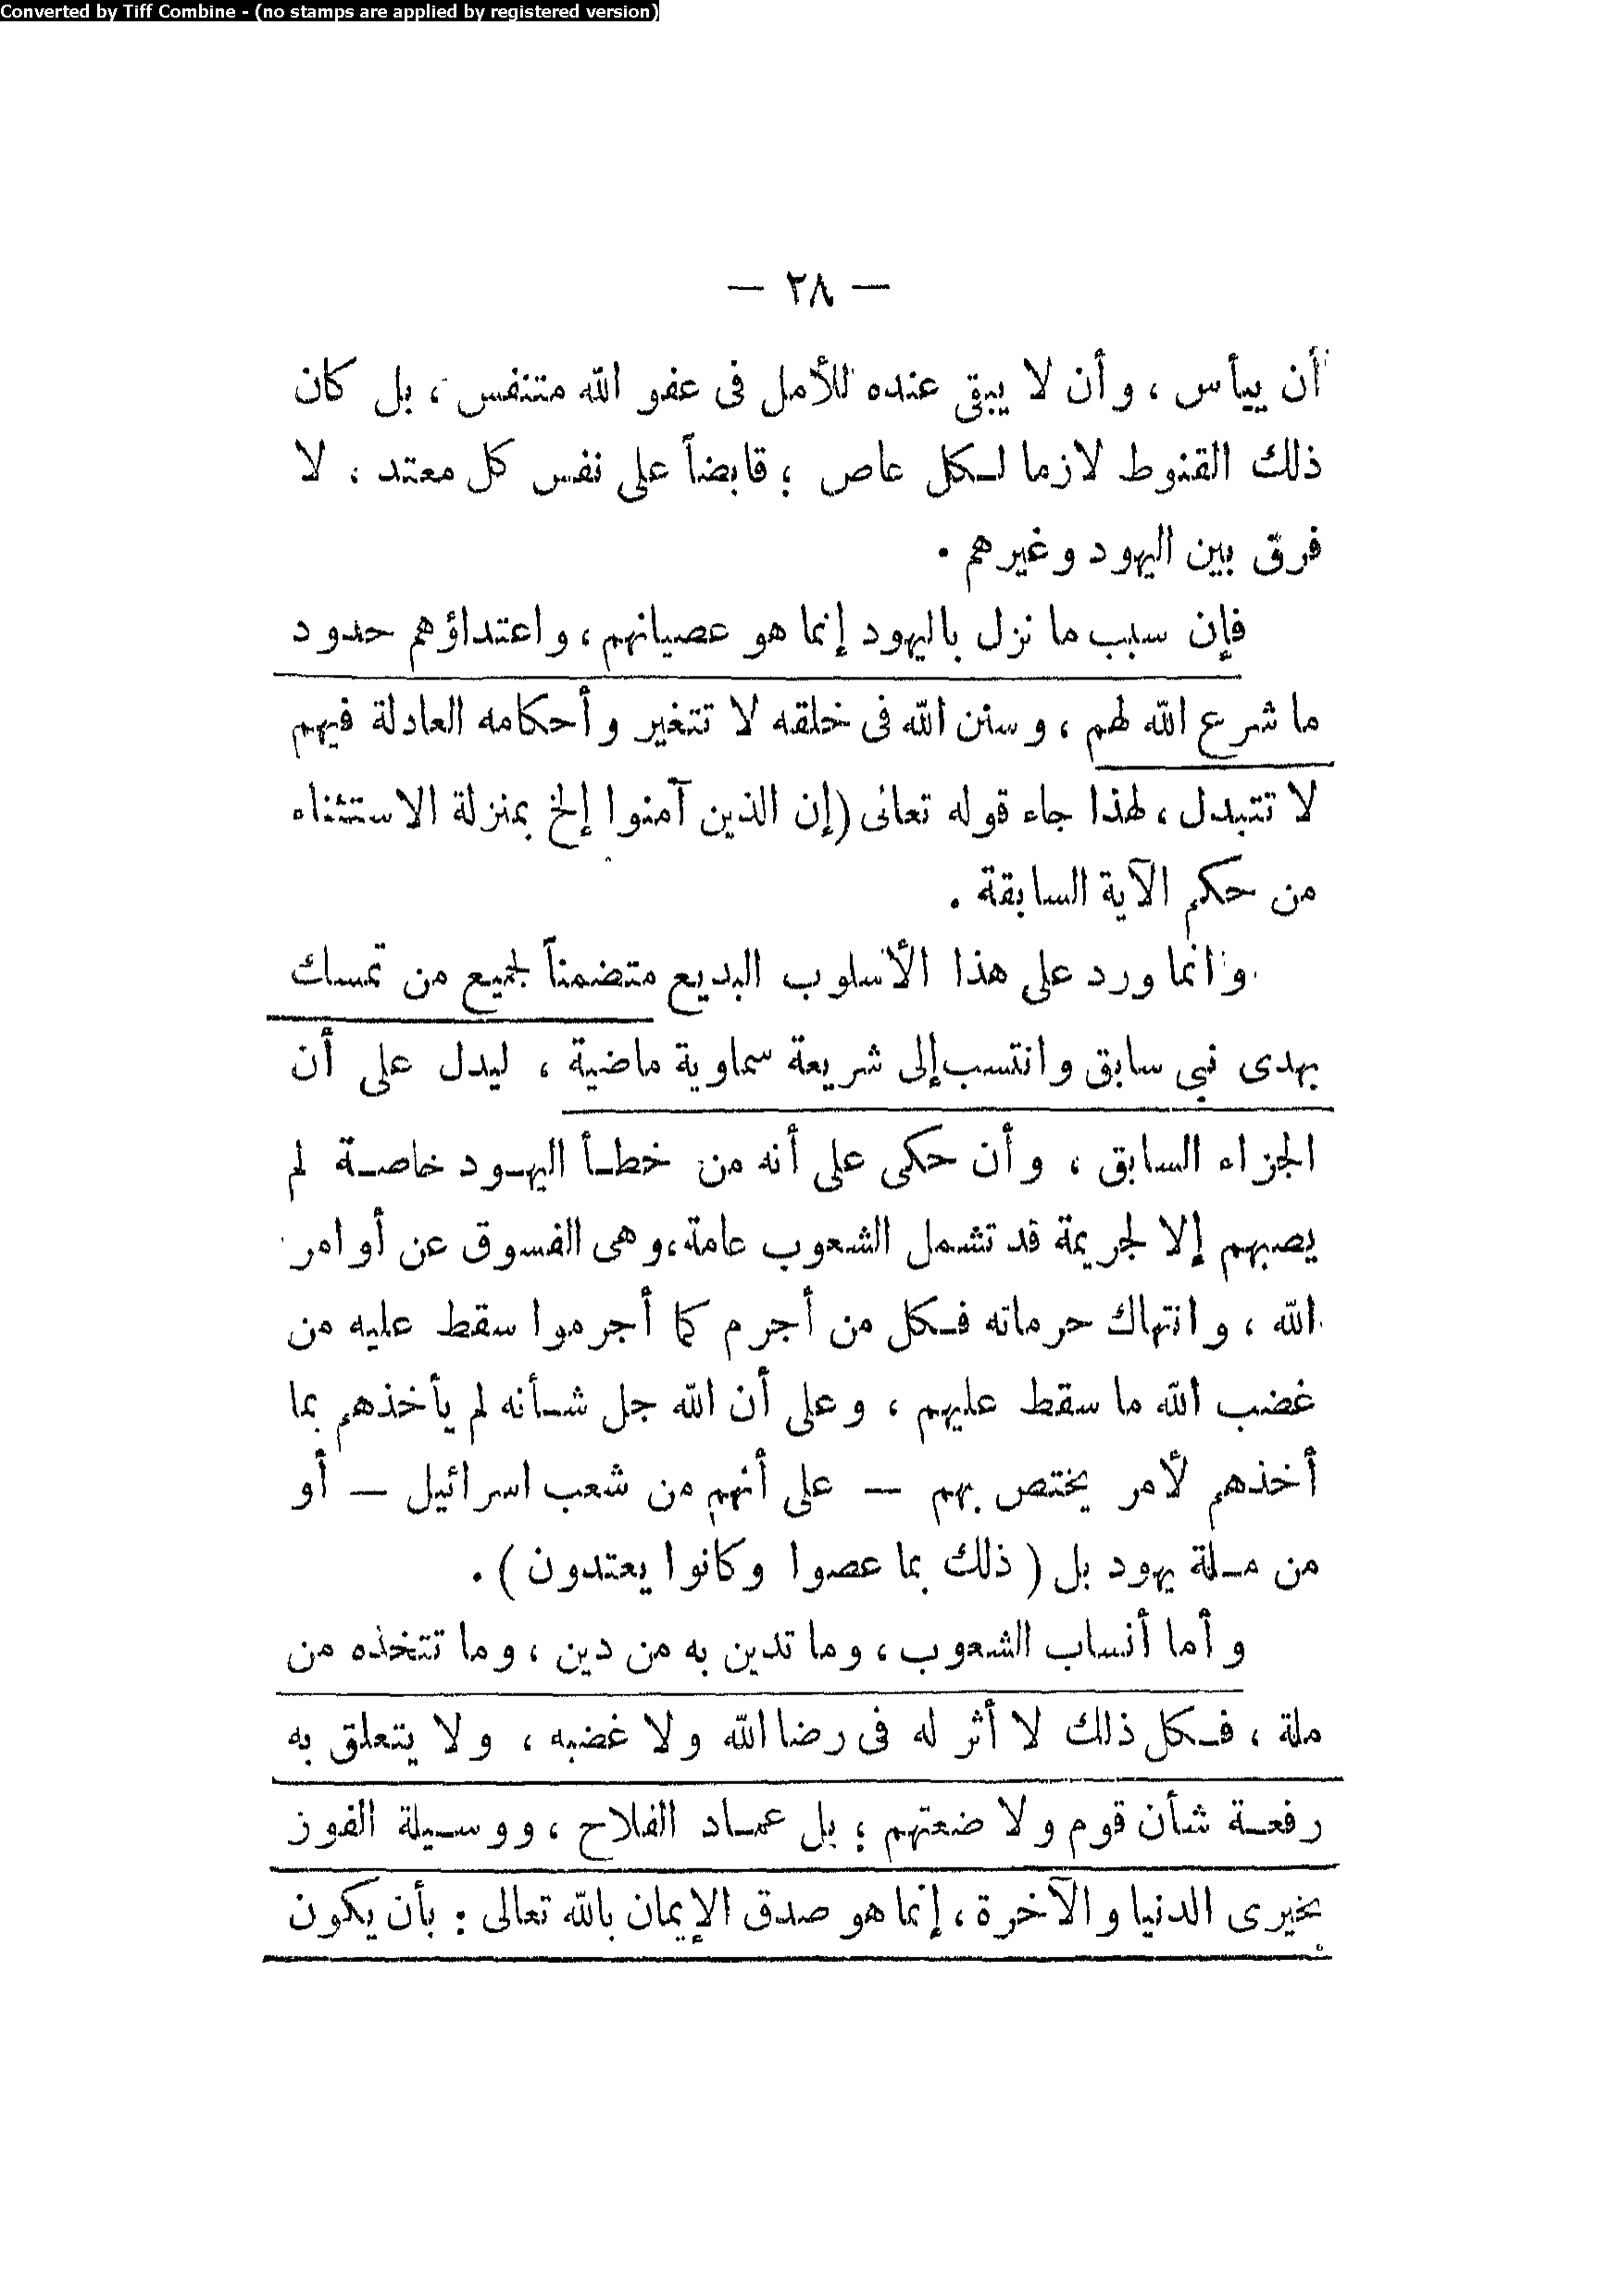 Converted by Tiff Combine - (no stamps are applied by registered version)
— ٢٨ —
أن ييأس ، وأن لا يبقى عنده للأمل فى عفو الله متنفس ، بل كان
ذلك القنوط لازما لكل عاص ؛ قابضاً على نفس كل معتد ، لا
فرق بين اليهود وغيرهم .
فإن سبب ما نزل باليهود إنما هو عصيانهم ، واعتداؤهم حدود
ما شرع الله لهم ، وسنن الله فى خلقه لا تتغير وأحكامه العادلة فيهم
لا تتبدل ، لهذا جاء قوله تعالى (إن الذين آمنوا إلخ بمنزلة الاستثناء
من حكم الآية السابقة .
وانما ورد على هذا الأسلوب البديع متضمناً لجميع من تمسك
بهدى نبي سابق وانتسب إلى شريعة سماوية ماضية ، ليدل على أن
الجزاء السابق ، وأن حكى على أنه من خطأ اليهود خاصة لم
يصبهم إلا لجريمة قد تشمل الشعوب عامة ، وهى الفسوق عن أوامر
الله ، وانتهاك حرماته فكل من أجرم كما أجرموا سقط عليه من
غضب الله ما سقط عليهم ، وعلى أن الله جل شأنه لم يأخذهم بما
أخذهم لأمر يختص بهم — على أنهم من شعب اسرائيل — أو
من ملة يهود بل ( ذلك بما عصوا وكانوا يعتدون ) .
وأما أنساب الشعوب ، وما تدين به من دين ، وما تتخذه من
ملة ، فكل ذلك لا أثر له فى رضا الله ولا غضبه ، ولا يتعلق به
رفعة شأن قوم ولا ضعتهم ؛ بل عماد الفلاح ، ووسيلة الفوز
بخيرى الدنيا والآخرة ، إنما هو صدق الإيمان بالله تعالى : بأن يكون